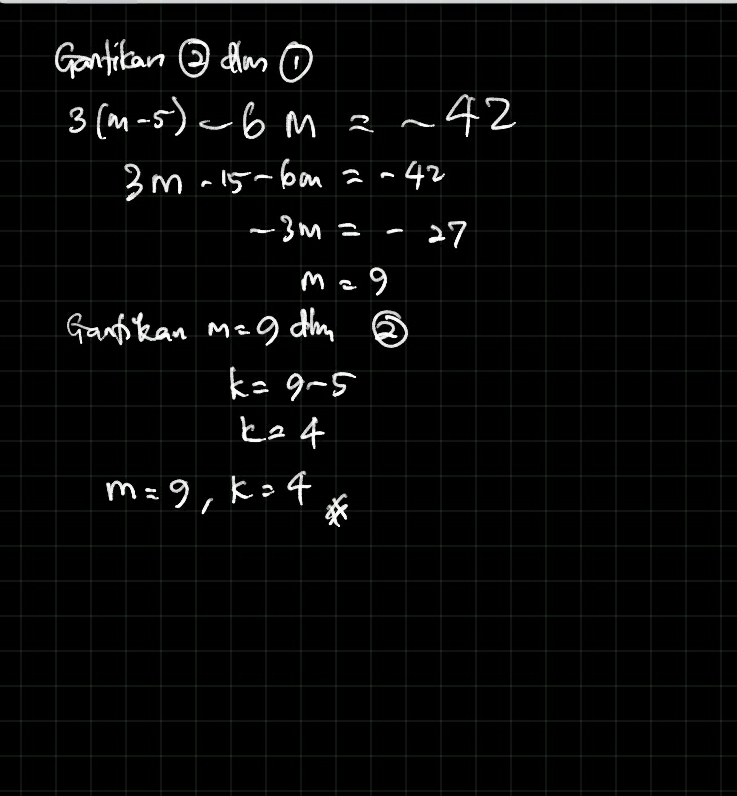 Gantikan ② dlm ①
3(m-5) - 6m = -42
3m - 15 - 6m = -42
-3m = -27
m = 9
Gantikan m=9 dlm ②
k = 9-5
k = 4
m = 9, k = 4 *